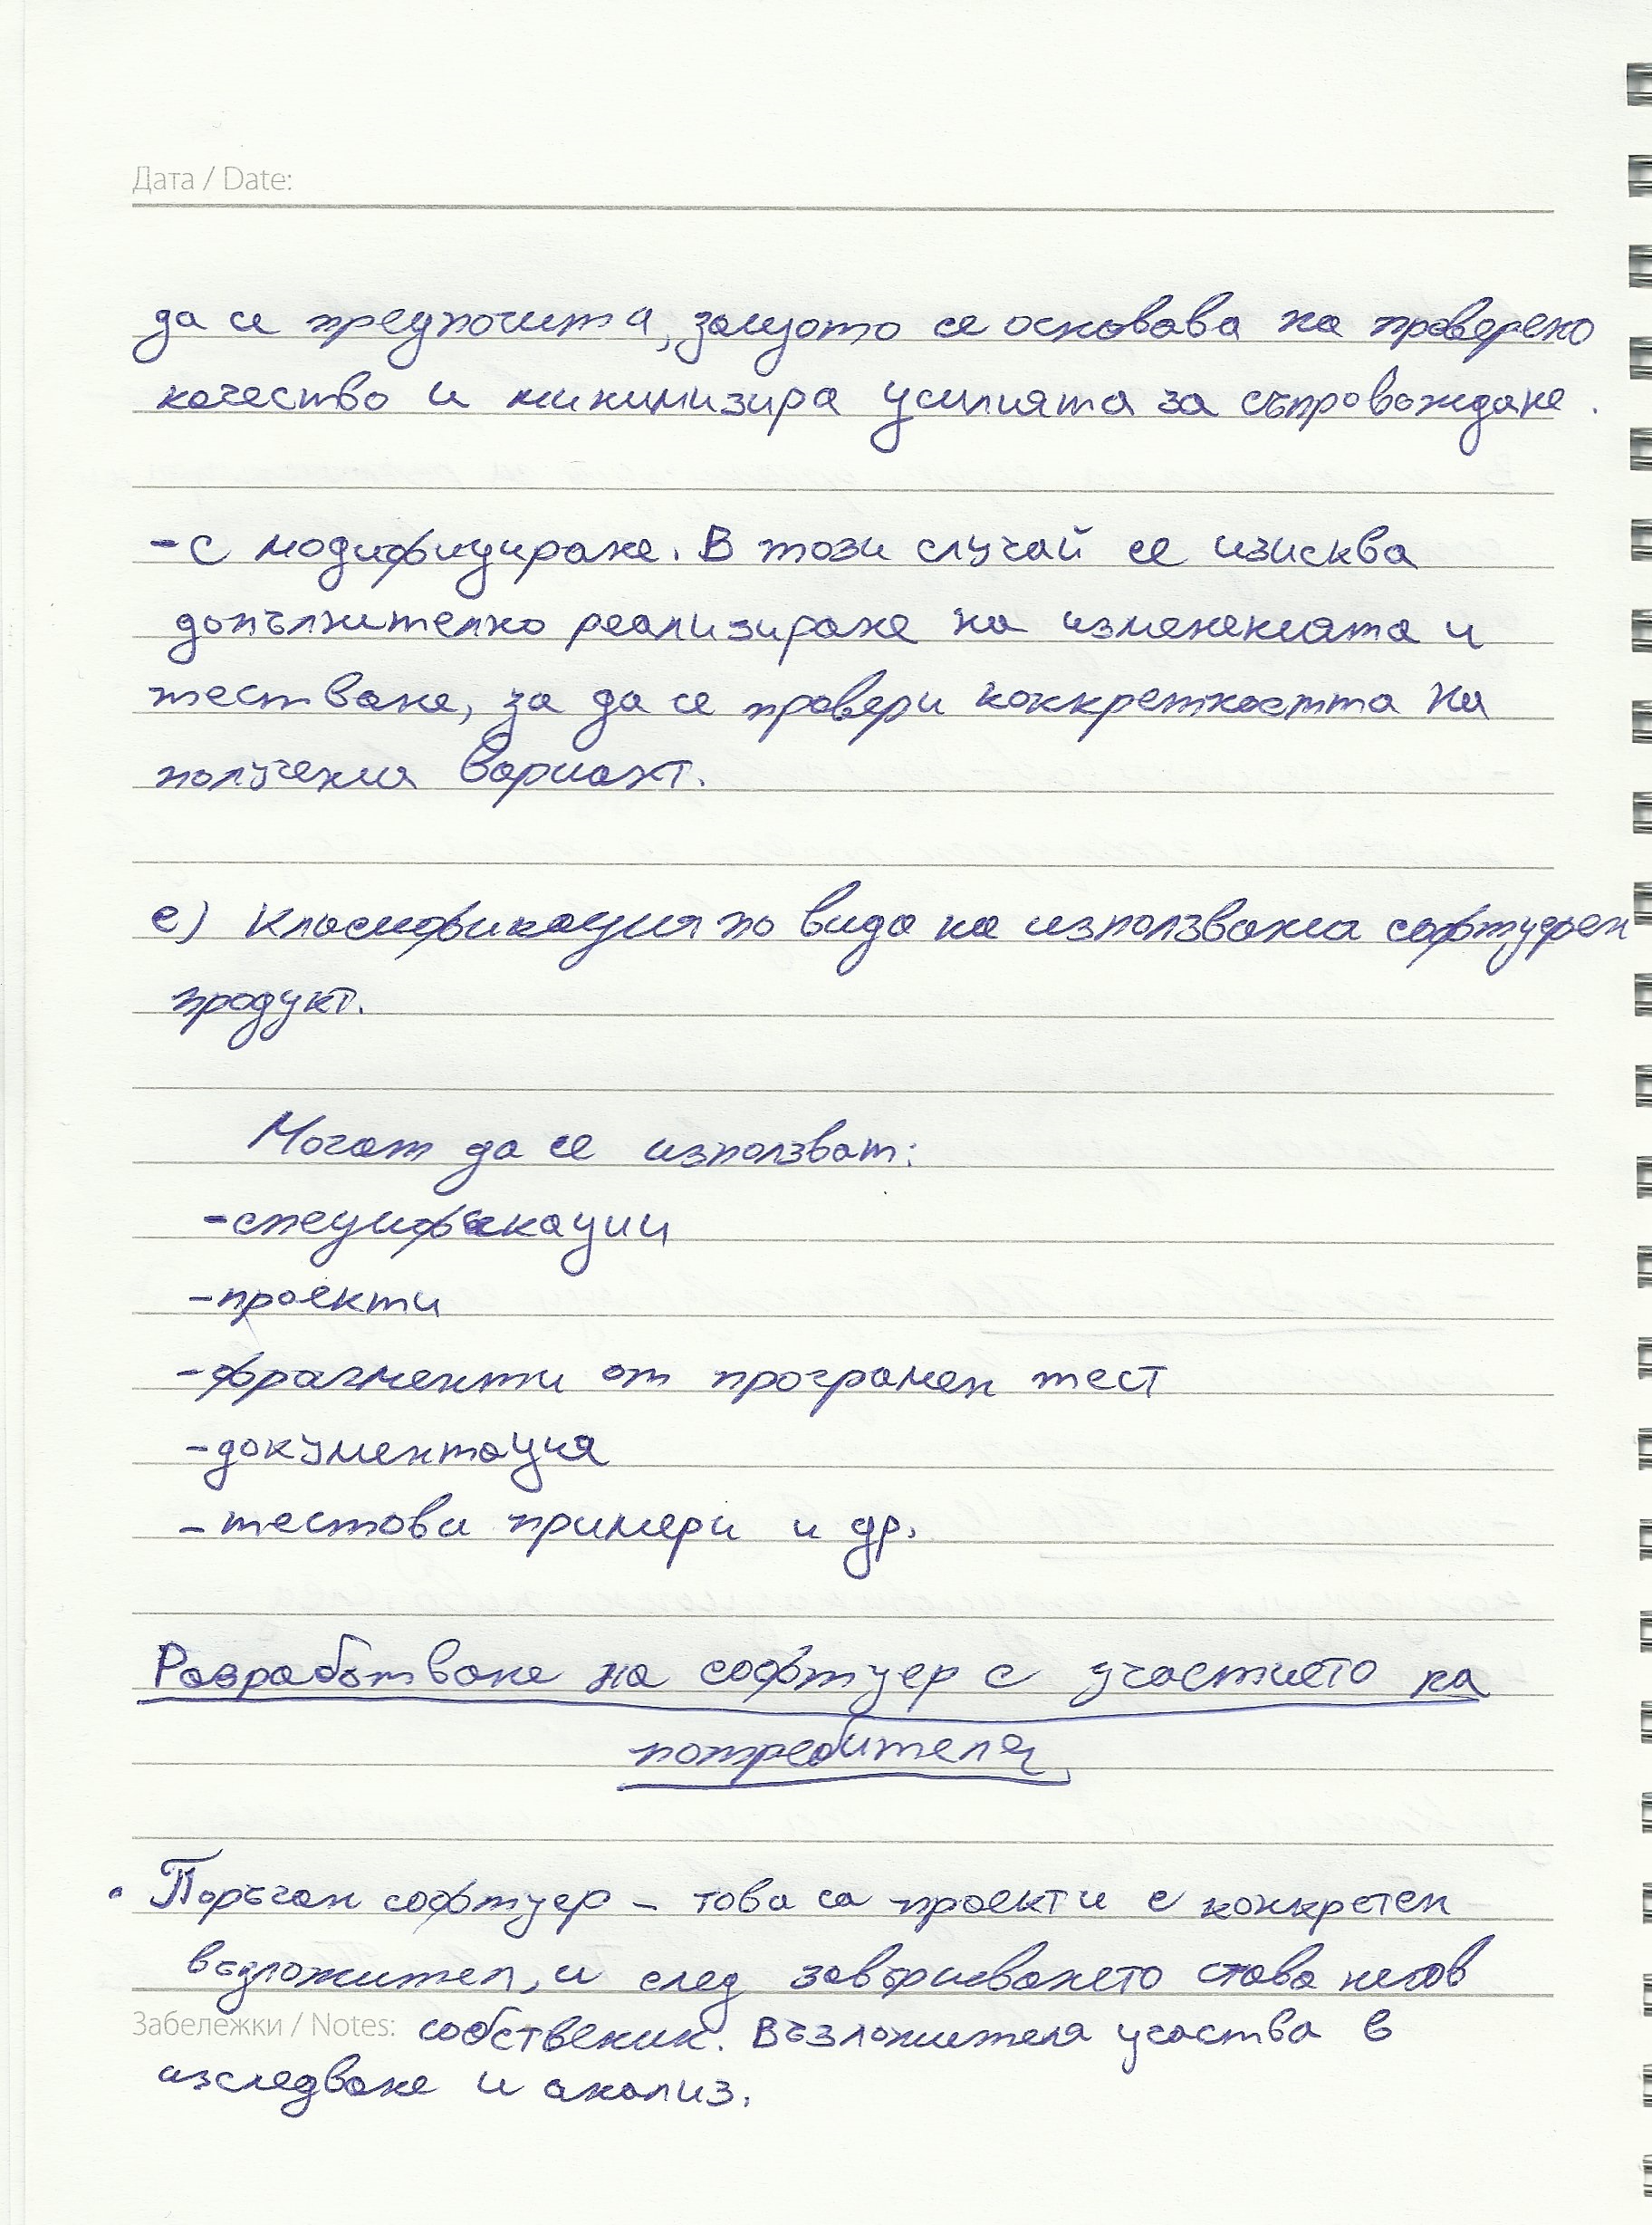 Дата / Date:
да се предпочита, защото се основава на проверено
качество и минимизира усилията за съпровождане.
- с модифициране. В този случай се изисква
допълнително реализиране на измененията и
тестване, за да се провери конкретността на
получения вариант.
е) Класификация по вида на използвания софтуерен
продукт.
Могат да се използват:
- спецификации
- проекти
- фрагменти от програмен тест
- документация
- тестови примери и др.
Разработване на софтуер с участието на
потребителя
• Поръчан софтуер - това са проекти с конкретен
възложител, и след завършването става негов
Забележки / Notes: собственик. Възложителя участва в
изследване и анализ.